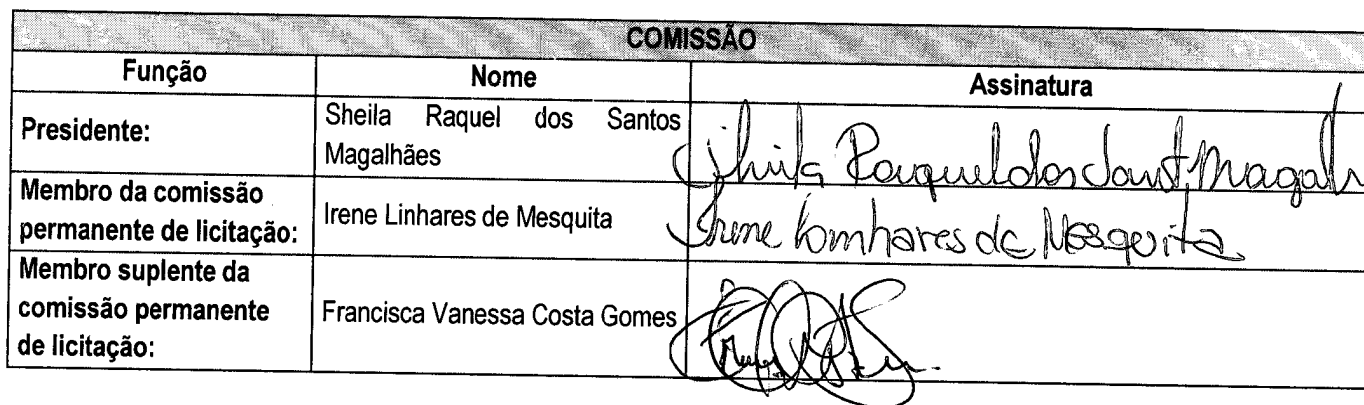 COMISSÃO
Função Nome Assinatura
Presidente: Sheila Raquel dos Santos Magalhães Sheila Raquel dos Sant Magalh
Membro da comissão permanente de licitação: Irene Linhares de Mesquita Irene Linhares de Mesquita
Membro suplente da comissão permanente de licitação: Francisca Vanessa Costa Gomes